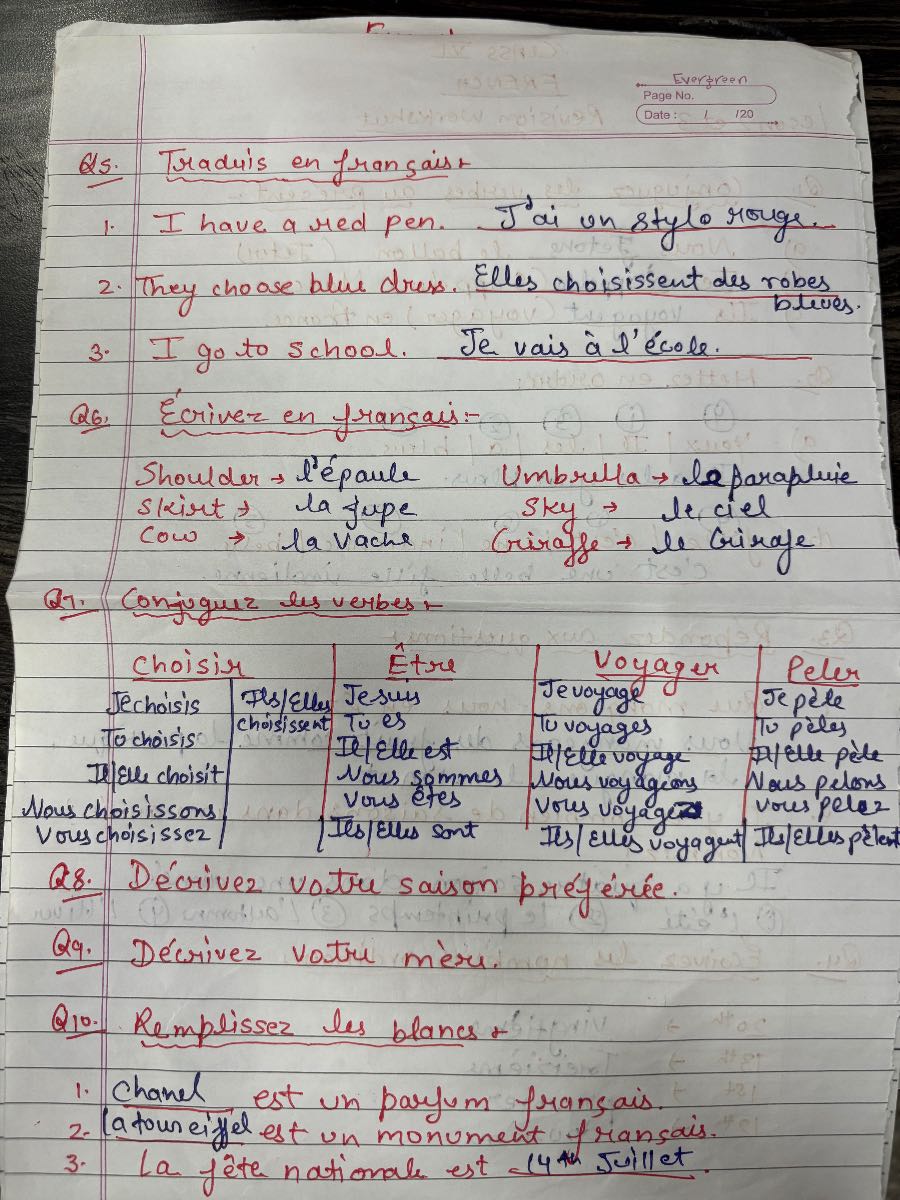 Evergreen
Page No.
Date : / /20
Q5. Traduis en français:-
1. I have a red pen. J'ai un stylo rouge.
2. They choose blue dress. Elles choisissent des robes
bleues.
3. I go to school. Je vais à l'école.
Q6. Écrivez en français:-
Shoulder → l'épaule Umbrella → la parapluie
Skirt → la jupe Sky → le ciel
Cow → la vache Giraffe → le Girafe
Q7. Conjuguez les verbes:-
Choisir Être Voyager Peler
Je choisis Ils/Elles Je suis Je voyage Je pèle
choisissent Tu es Tu voyages Tu pèles
Tu choisis Il/Elle est Il/Elle voyage Il/Elle pèle
Il/Elle choisit Nous sommes Nous voyageons Nous pelons
Nous choisissons Vous êtes Vous voyagez Vous pelez
Vous choisissez Ils/Elles sont Ils/Elles voyagent Ils/Elles pèlent
Q8. Décrivez votre saison préférée.
Q9. Décrivez votre mère.
Q10. Remplissez les blancs:-
1. Chanel est un parfum français.
2. La tour eiffel est un monument français.
3. La fête nationale est 14th Juillet.